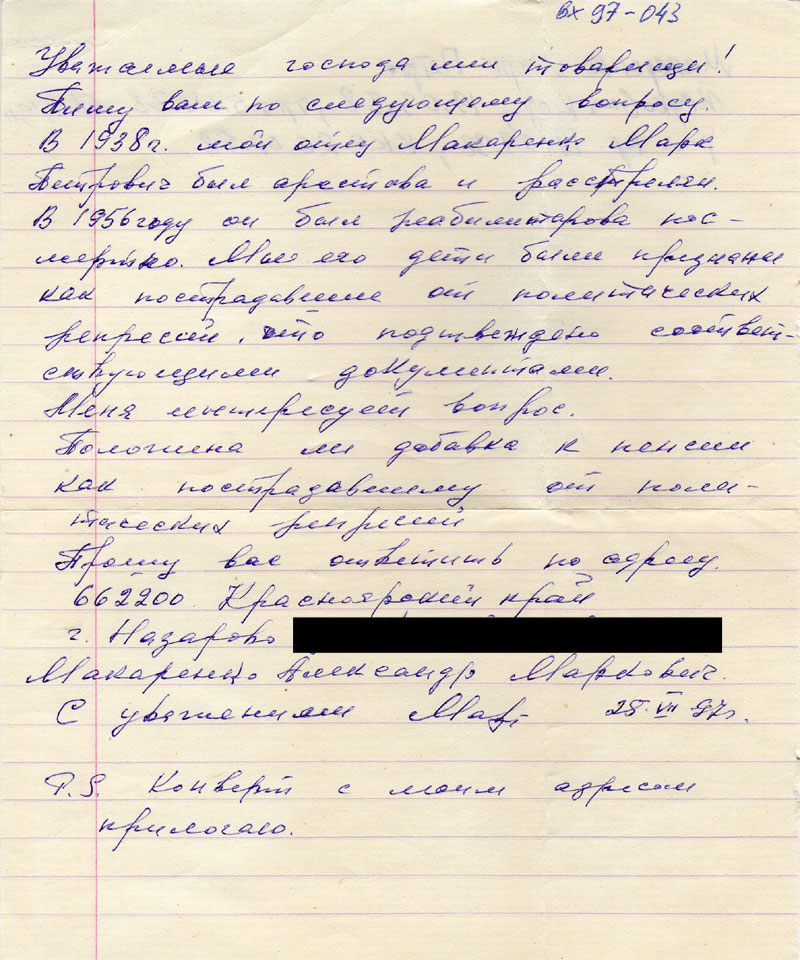 вх 97-043
Уважаемые господа или товарищи!
Пишу вам по следующему вопросу.
В 1938г. мой отец Макаренко Марк
Петрович был арестова и расстрелян.
В 1956 году он был реабилитарова пос-
мертно. Мы его дети были признаны
как пострадавшие от политических
репресий, что подтвеждено соответ-
ствующими документами.
Меня интересует вопрос.
Положена ли добавка к пенсии
как пострадавшему от поли-
тических репресий
Прошу вас ответить по адресу.
662200 Красноярский край
г. Назарово
Макаренко Александр Маркович.
С уважением 28.VII 97г.
P.S. Конверт с моим адресом
прилогаю.